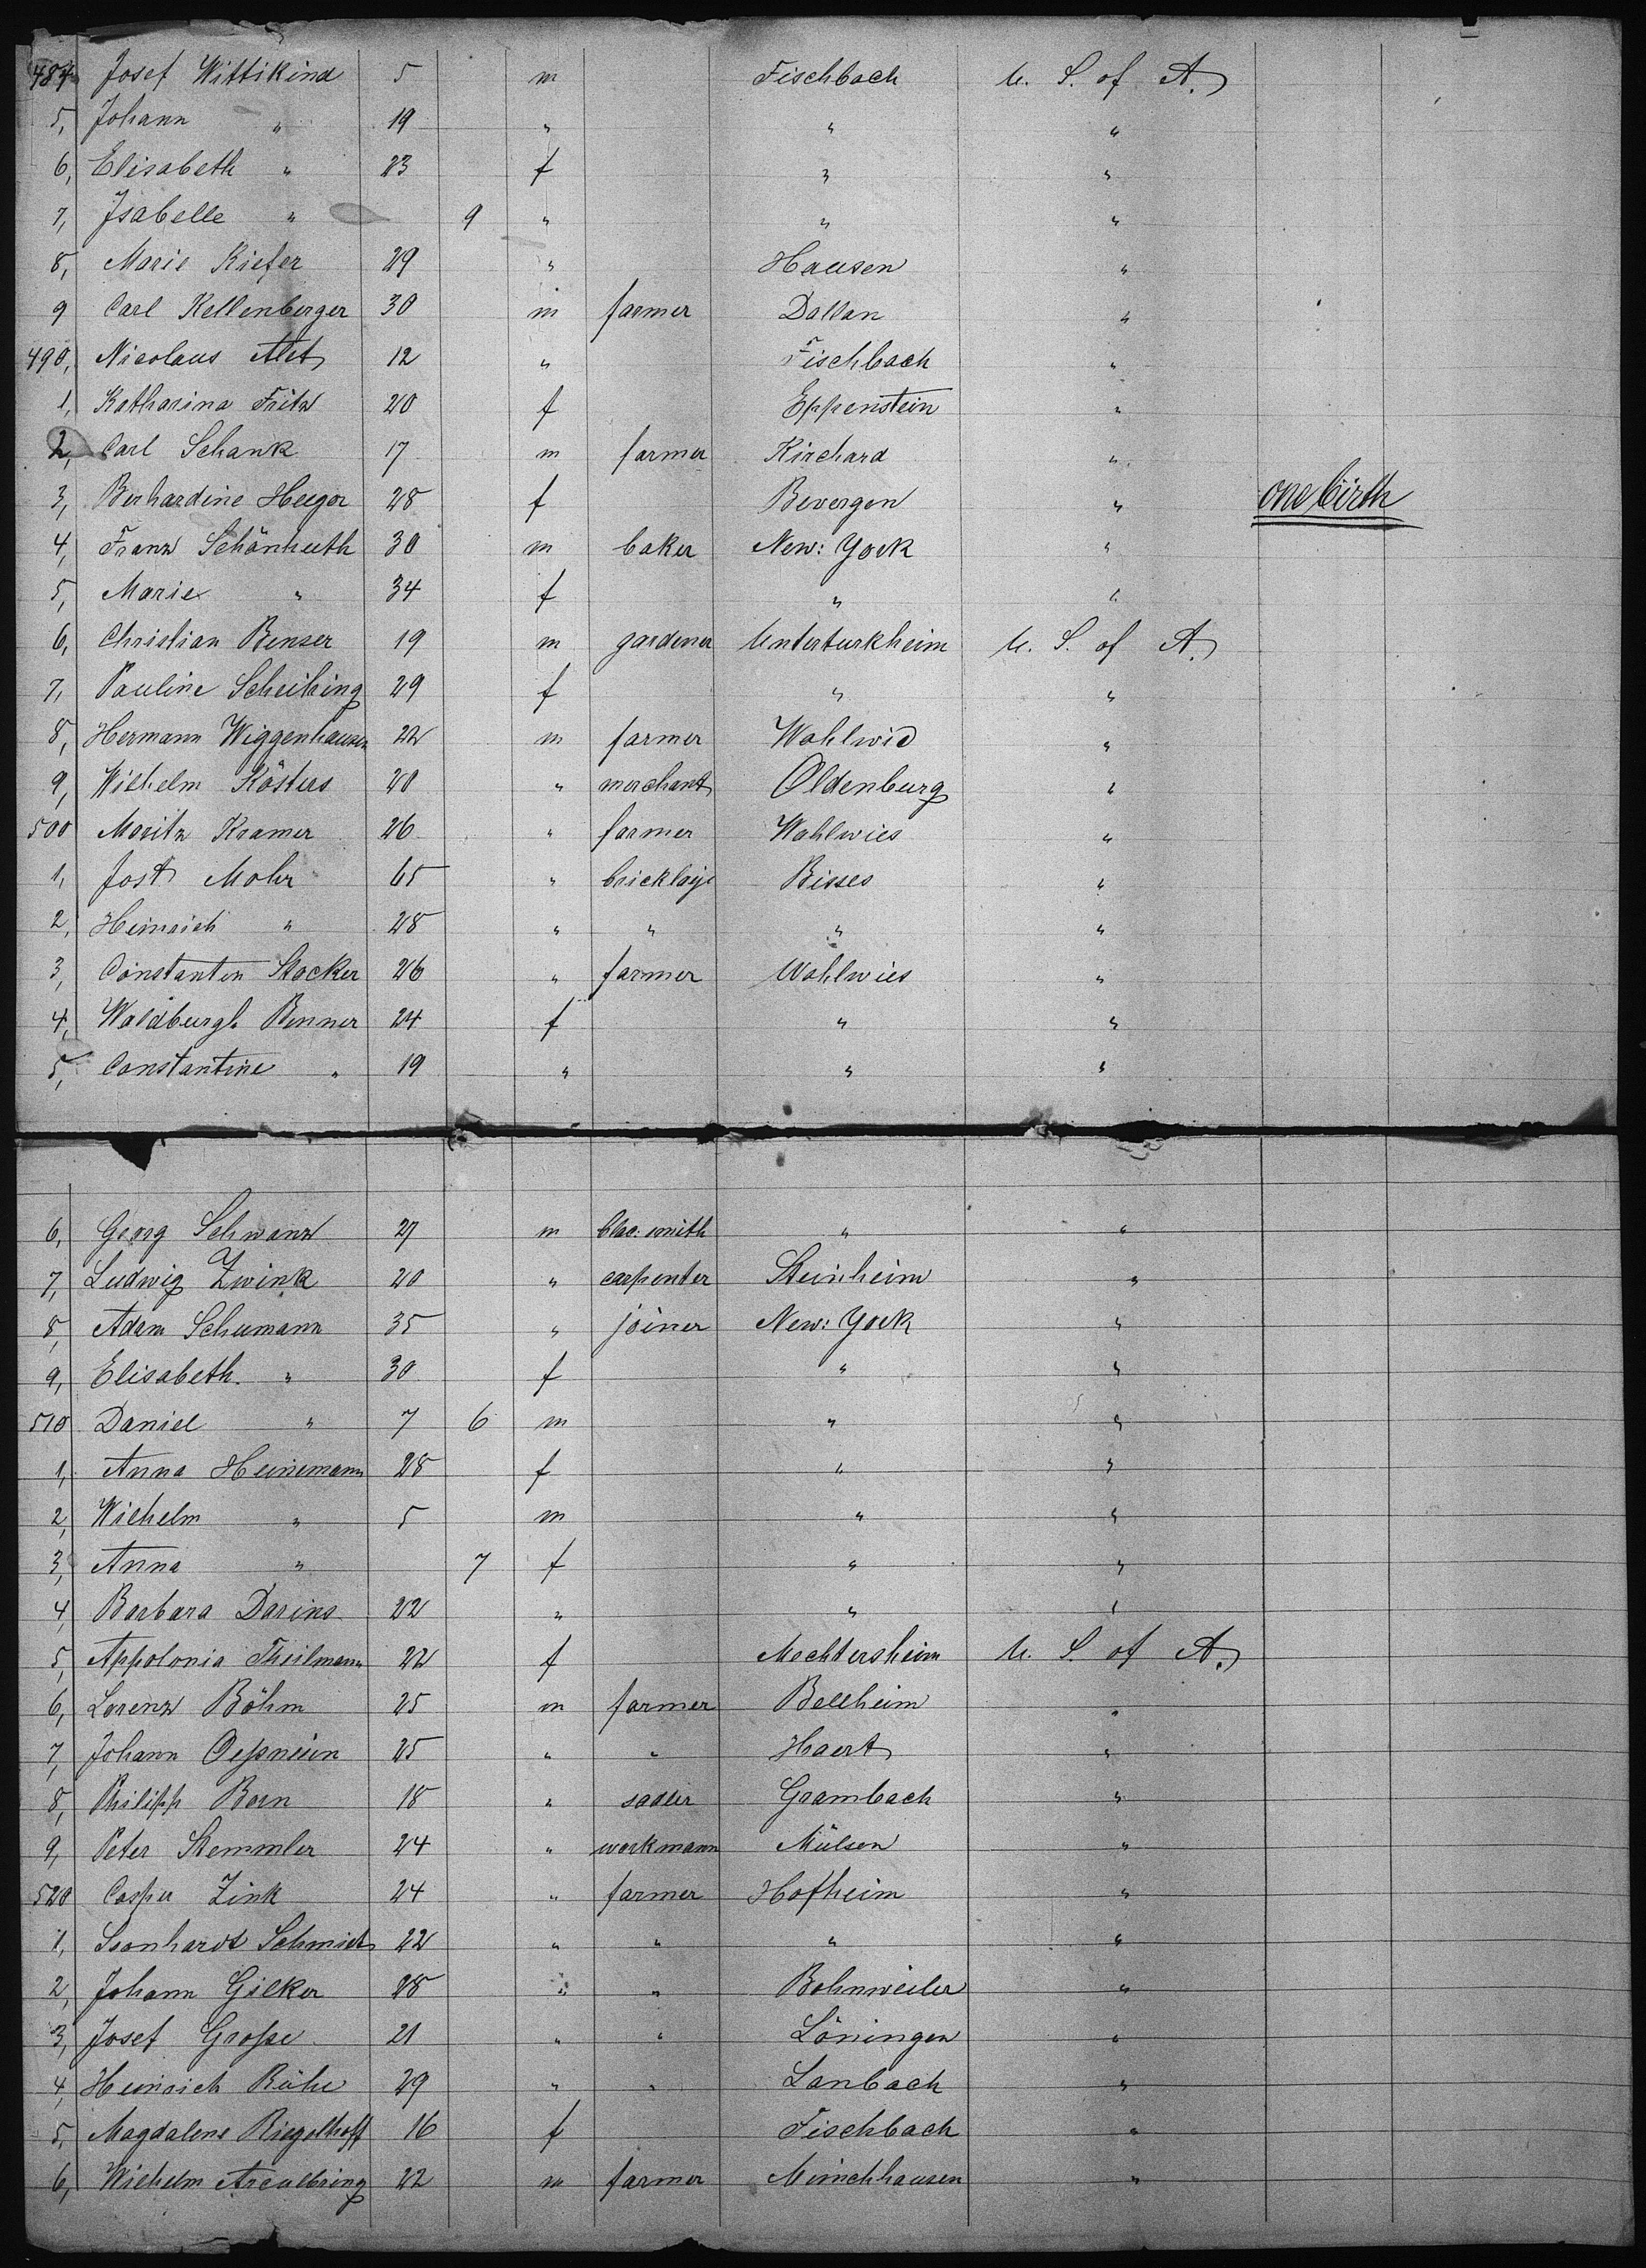 484 Josef Wittikind 5 m Fischbach U. S. of A.
5, Johann " 19 " " "
6, Elisabeth " 23 f " "
7, Isabelle " 9 " " "
8, Marie Kiefer 29 " Hausen "
9 Carl Kellenberger 30 m farmer Dallan "
490, Nicolaus Alet 12 " Fischbach "
1, Katharina Fritz 20 f Eppenstein "
2, Carl Schank 17 m farmer Kirchard "
3, Berhardine Heeger 28 f Bevergen " one birth
4, Franz Schönhuth 30 m baker New: York "
5, Marie " 34 f " "
6, Christian Benser 19 m gardener Unterturkheim U. S. of A.
7, Pauline Scheihing 29 f " "
8, Hermann Wiggenhausen 22 m farmer Wahlwid "
9, Wilhelm Kösters 20 " merchant Oldenburg "
500 Moritz Kramer 26 " farmer Wahlwies "
1, Jost Mohr 65 " bricklaye Bisses "
2, Heinrich " 28 " " " "
3, Constantin Stocker 26 " farmer Wahlwies "
4, Waldburgh Benner 24 f " "
5, Constantine " 19 " " "
6, Georg Schwanz 27 m blac. smith " "
7, Ludwig Zwink 20 " carpenter Steinheim "
8, Adam Schumann 35 " joiner New: York "
9, Elisabeth " 30 f " "
510 Daniel " 7 6 m " "
1, Anna Heinemann 28 f " "
2, Wilhelm " 5 m " "
3, Anna " 7 f " "
4, Barbara Darins 22 " " "
5, Appolonia Theilmann 22 f Mechtersheim U. S. of A.
6, Lorenz Böhm 25 m farmer Bellheim "
7, Johann 25 " " Haert "
8, Philipp Born 18 " sadler Grambach "
9, Peter Stemmler 24 " workmann Mülsen "
520 Casper Zink 24 " farmer Hofheim "
1, Leonhardt Schmidt 22 " " " "
2, Johann Gilker 28 " " Bohnweiler "
3, Josef Große 21 " " Löningen "
4, Heinrich Rühe 29 " " Lanbach "
5, Magdalene Riegelhoff 16 f Fischbach "
6, Wilhelm 22 m farmer Minchhausen "